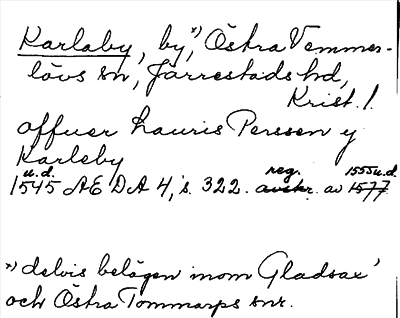 Karlaby, by,*) Östra Vemmer-
lövs sn, Järrestads hd,
Krist. l.
offuer Lauris Perssen y
Karleby
u.d. reg. 1555 u.d.
1545 AE DA 4, s. 322. avskr. av 1577
*) delvis belägen inom Gladsax'
och Östra Tommarps snr.